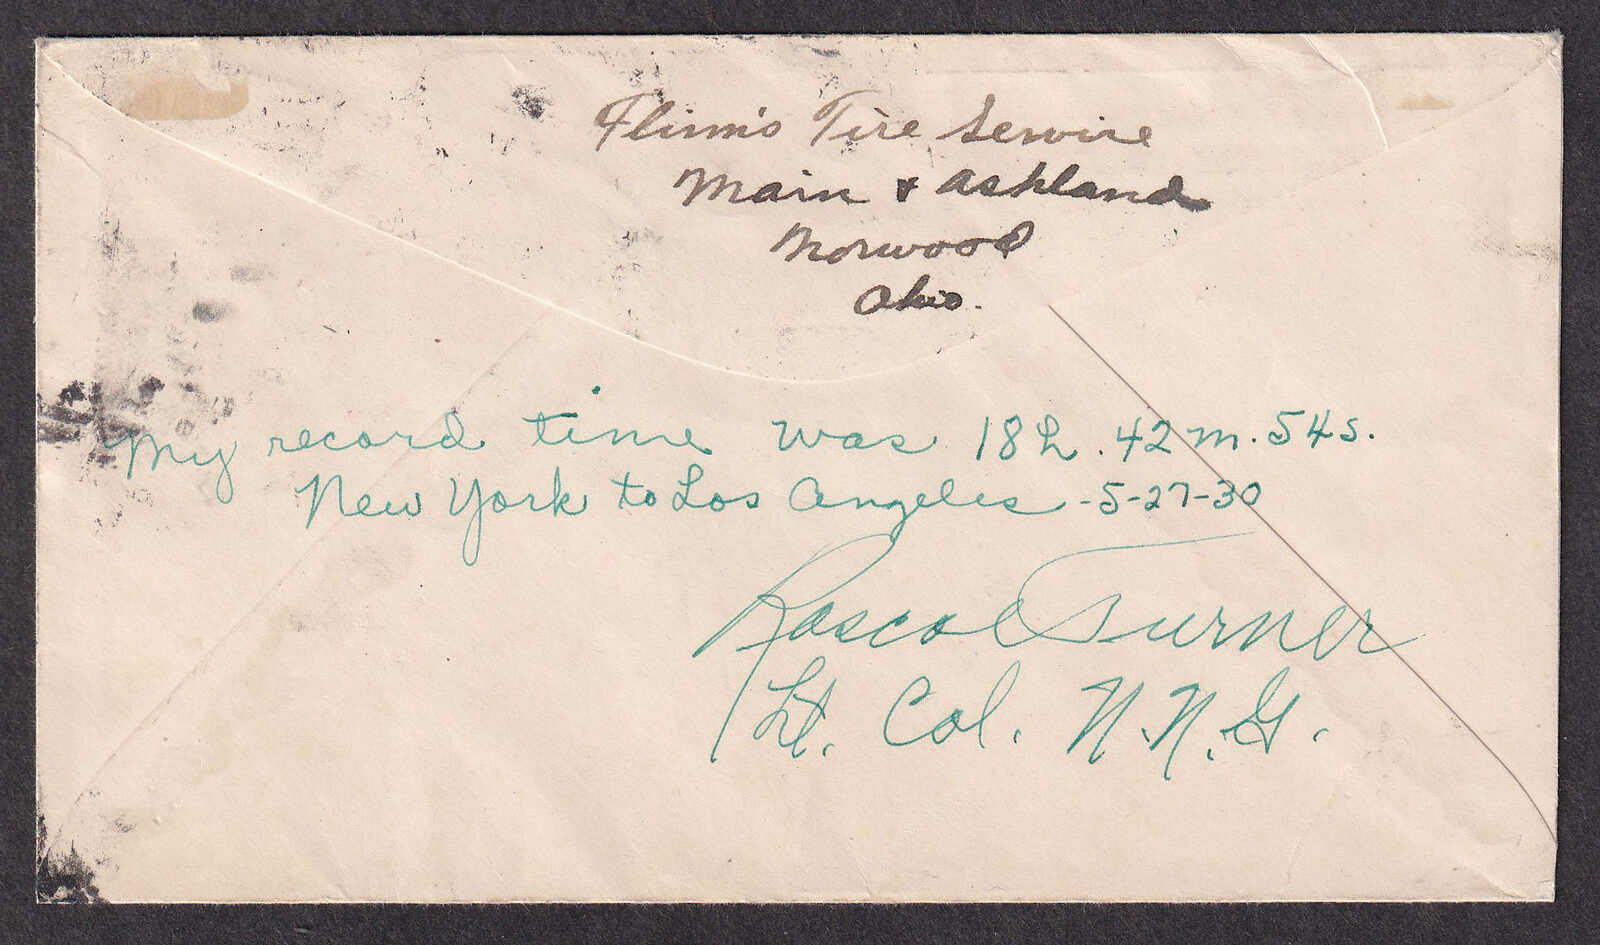 Flinn's Tire Service
Main & Ashland
Norwood
Ohio.
My record time was 18h. 42m. 54s.
New York to Los Angeles - 5-27-30
Roscoe Turner
Lt. Col. N.N.G.